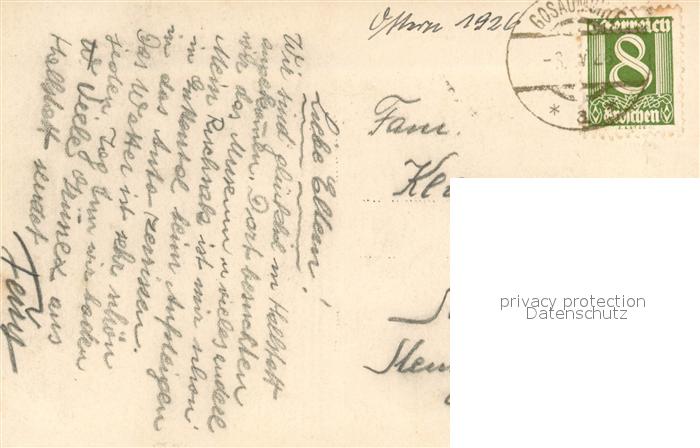 Ostern 1926
GOSAUMÜHLE
Österreich
8
Groschen
Fam.
Liebe Eltern!
Wir sind glücklich in Hallstatt
angekommen. Dort besuchten
wir das Museum u. vieles andere
Mein Rucksack ist mir schon
in beim Aufsteigen
in das Auto zerrissen.
Das Wetter ist sehr schön
jeden Tag tun wir baden
Viele Grüsse aus
Hallstatt sendet
privacy protection
Datenschutz